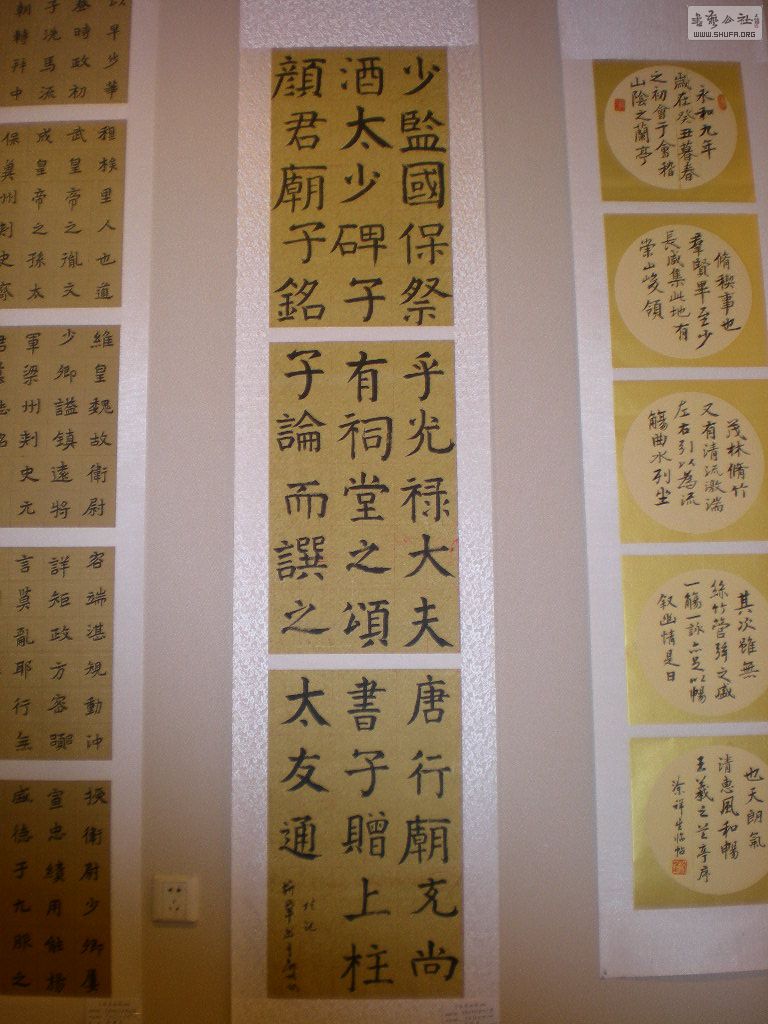 少監國保祭
酒太少碑子
顔君廟子銘
乎光禄大夫
有祠堂之頌
子論而譔之
唐行廟充尚
書子贈上柱
太友通
永和九年
歳在癸丑暮春
之初會于會稽
山陰之蘭亭
脩稧事也
羣賢畢至少
長咸集此地有
崇山峻領
茂林脩竹
又有清流激湍
左右引以為流
觴曲水列坐
其次雖無
絲竹管弦之盛
一觴一詠亦足以暢
叙幽情是日
也天朗氣
清惠風和暢
王羲之兰亭序
以早步華
時政初
子洗馬流
朝轉拜中
程桉里人也道
武皇帝之胤文
成皇帝之孫太
保冀州刺史齊
維皇魏故衛尉
少卿謚鎮遠將
軍梁州刺史元
容端湛規動沖
詳矩政方密
言莫亂耶行無
授衛尉少卿屢
宣忠績用能揚
威德于九服之
書藝公社
WWW.SHUFA.ORG